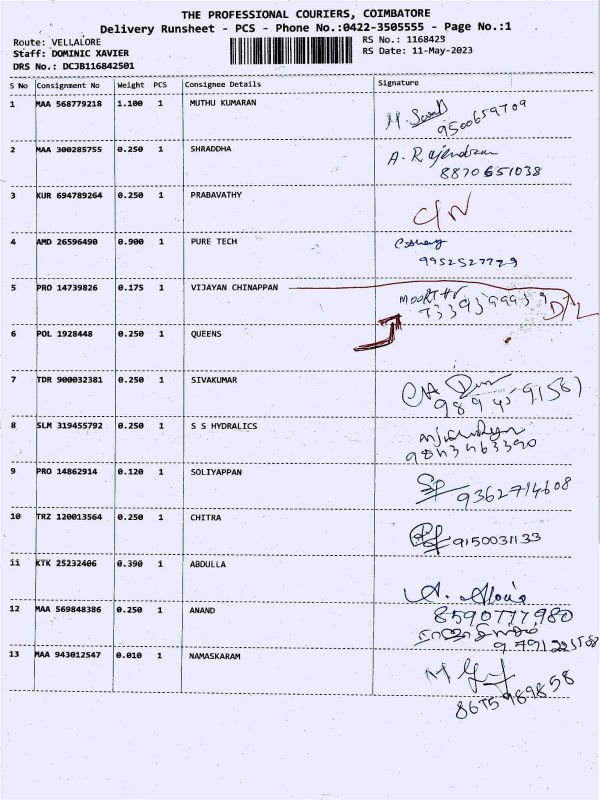 THE PROFESSIONAL COURIERS, COIMBATORE
Delivery Runsheet - PCS - Phone No.:0422-3505555 - Page No.:1
Route: VELLALORE RS No.: 1168423
Staff: DOMINIC XAVIER RS Date: 11-May-2023
DRS No.: DCJB116842501
S No Consignment No Weight PCS Consignee Details Signature
1 MAA 568779218 1.100 1 MUTHU KUMARAN
9500659709
2 MAA 300285755 0.250 1 SHRADDHA A. Rajendran
8870651038
3 KUR 694789264 0.250 1 PRABAVATHY
4 AMD 26596490 0.900 1 PURE TECH
9952527729
5 PRO 14739826 0.175 1 VIJAYAN CHINAPPAN
6 POL 1928448 0.250 1 QUEENS
7 TDR 900032381 0.250 1 SIVAKUMAR
8 SLM 319455792 0.250 1 S S HYDRALICS
9843463390
9 PRO 14862914 0.120 1 SOLIYAPPAN
9362714608
10 TRZ 120013564 0.250 1 CHITRA
9150031133
11 KTK 25232406 0.390 1 ABDULLA
12 MAA 569848386 0.250 1 ANAND 8590777980
13 MAA 943012547 0.010 1 NAMASKARAM